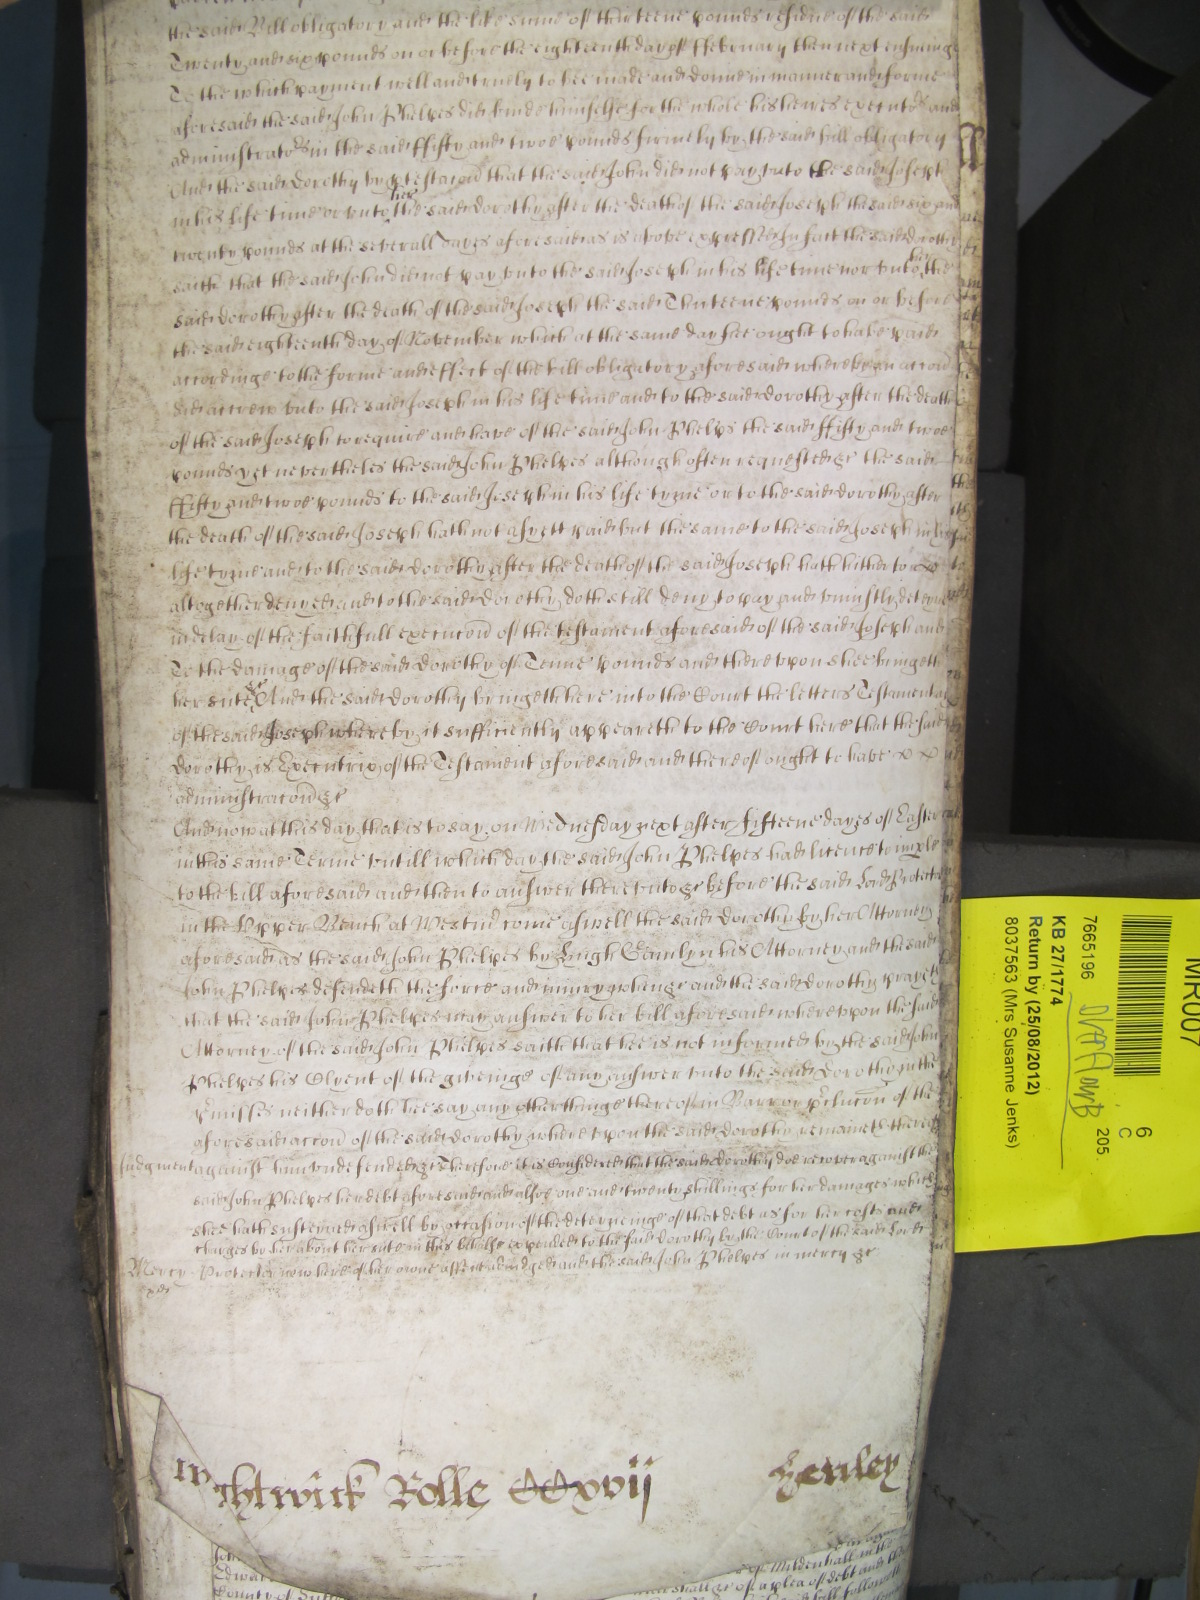 the said Bill obligatory and the like summe of thirteene pounds residue of the said
Twenty and six pounds on or before the eighteenth day of ffebruary then next ensuinge
To the which payment well and truely to bee made and donne in manner and forme
aforesaid the said John Phelpes did binde himselfe for the whole his heires executors and
administrators in the said ffifty and twoe pounds firmely by the said bill obligatory
And the said Dorothy by protestacion that the said John did not pay unto the said Joseph
in his life time or unto her the said Dorothy after the death of the said Joseph the said six and
twenty pounds at the severall dayes aforesaid as is above expressed In fact the said Dorothy
saith that the said John did not pay unto the said Joseph in his life time nor unto her the
said Dorothy after the death of the said Joseph the said Thirteene pounds on or before
the said eighteenth day of November which at the same day hee ought to have paid
accordinge to the forme and effect of the bill obligatory aforesaid whereupon accion
did accrew unto the said Joseph in his life time and to the said Dorothy after the death
of the said Joseph to require and have of the said John Phelps the said ffifty and twoe
pounds yet nevertheles the said John Phelpes although often requested &c the said
ffifty and twoe pounds to the said Joseph in his life tyme or to the said Dorothy after
the death of the said Joseph hath not as yett paid but the same to the said Joseph in his
life tyme and to the said Dorothy after the death of the said Joseph hath hitherto
altogether denyed and to the said Dorothy doth still deny to pay and uniustly deteyne
in delay of the faithfull execucion of the testament aforesaid of the said Joseph and
To the damage of the said Dorothy of Tenne pounds and thereupon shee bringeth
her suite &c And the said Dorothy bringeth here into the Court the letters Testamentary
of the said Joseph whereby it sufficiently appeareth to the Court here that the said
Dorothy is Executrix of the Testament aforesaid and thereof ought to have x x
administracion &c
And now at this day that is to say on Wednesday next after fifteene dayes of Easter
in this same Terme untill which day the said John Phelpes had licence to imparle
to the bill aforesaid and then to answer thereunto &c before the said Lord Protector
in the Upper Bench at Westm come aswell the said Dorothy by her Attorney
aforesaid as the said John Phelpes by Hugh Gamlyn his Attorney and the said
John Phelpes defendeth the force and iniury when &c and the said Dorothy prayeth
that the said John Phelpes may answer to her bill aforesaid whereupon the said
Attorney of the said John Phelpes saith that hee is not informed by the said John
Phelpes his Clyent of the giveinge of any answer unto the said Dorothy in the
premisses neither doth hee say any other thinge thereof in Barr or preclucion of the
aforesaid accion of the said Dorothy whereupon the said Dorothy remaineth thereof
Judgment against him undefended &c Therefore it is Considered that the said Dorothy doe recover against the
said John Phelpes her debt aforesaid and alsoe one and twenty shillings for her damages which
shee hath susteyned aswell by occasion of the deteyneinge of that debt as for her costs and
charges by her about her suite in this behalfe expended to the said Dorothy by the Court of the said Lord
Mercy Protector now here of her owne assent adiudged and the said John Phelpes in mercy &c
Wightwick Rolle CCxvij
Henley
Mildenhall in the
of a plea of debt and
MR007
6
C
7665196
205.
KB 27/1774
Return by (25/08/2012)
8037563 (Mrs Susanne Jenks)